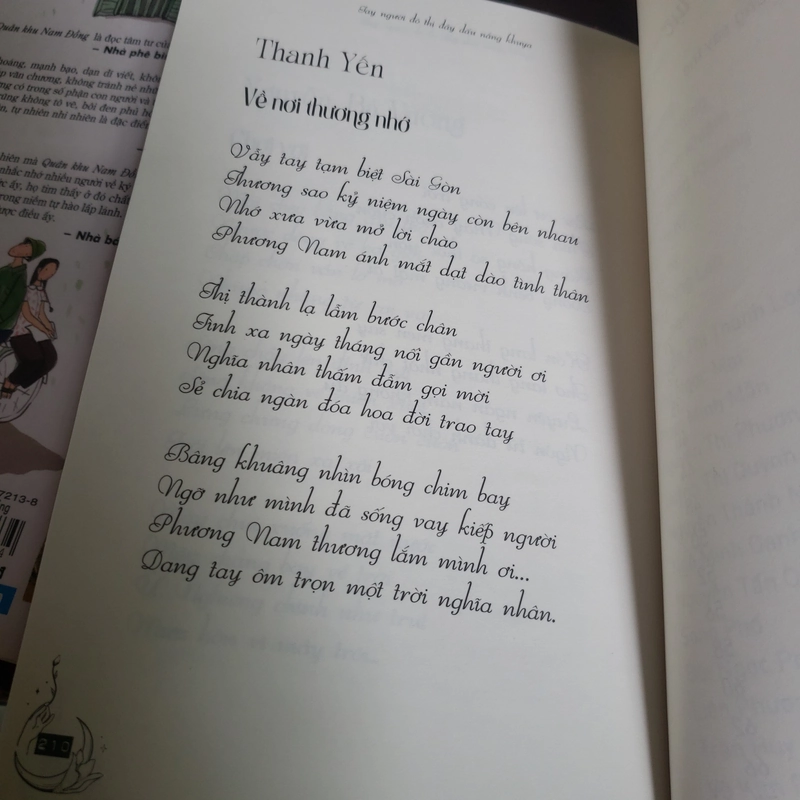 Tay người đỏ thì dây dẫu nặng
Thanh Yến
Về nơi thương nhớ
Vẫy tay tạm biệt Sài Gòn
Thương sao kỷ niệm ngày còn bên nhau
Nhớ xưa vừa mở lời chào
Phương Nam ánh mắt dạt dào tình thân
Thị thành lạ lẫm bước chân
Tình xa ngày tháng nối gần người ơi
Nghĩa nhân thấm đẫm gọi mời
Sẻ chia ngàn đóa hoa đời trao tay
Bâng khuâng nhìn bóng chim bay
Ngỡ như mình đã sống vay kiếp người
Phương Nam thương lắm mình ơi...
Dang tay ôm trọn một trời nghĩa nhân.
210
Quân khu Nam Đồng là đọc tâm tư
– Nhà phê
mạnh bạo, dạn dĩ viết
văn chương, không tránh né
có trong số phận con người và
không tô vẽ, bôi đen
tự nhiên nhi nhiên là đặc
mà Quân khu Nam
nhắc nhớ nhiều người về
ấy, họ tìm thấy ở đó
trong niềm tự hào lấp lánh.
được điều ấy.
– Nhà
7213-8